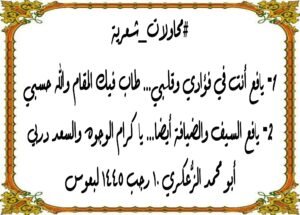 #محاولات_شعرية
1- يافع أنت في فؤادي وقلبي... طاب فيك المقام والله حسبي
2- يافع السيف والضيافة أيضا... يا كرام الوجوه والسعد دربي
أبو محمد الزُعكري ١٠ رجب ١٤٤٥ لبعوس